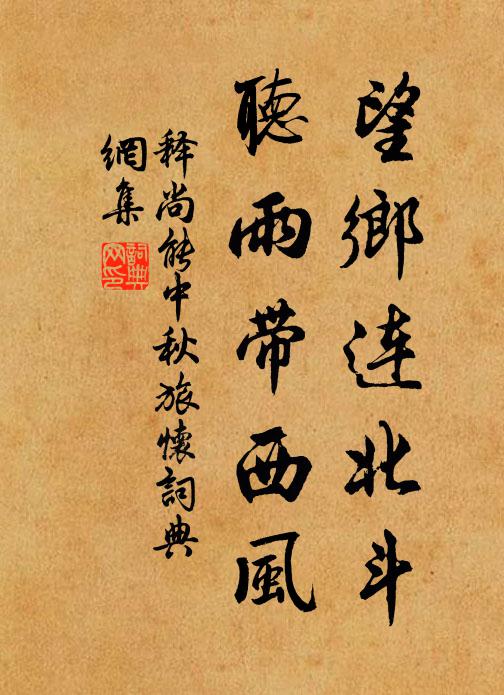 望鄉連北斗
聽雨帶西風
释尚能中秋旅懷詞典
網集
詞典
网印